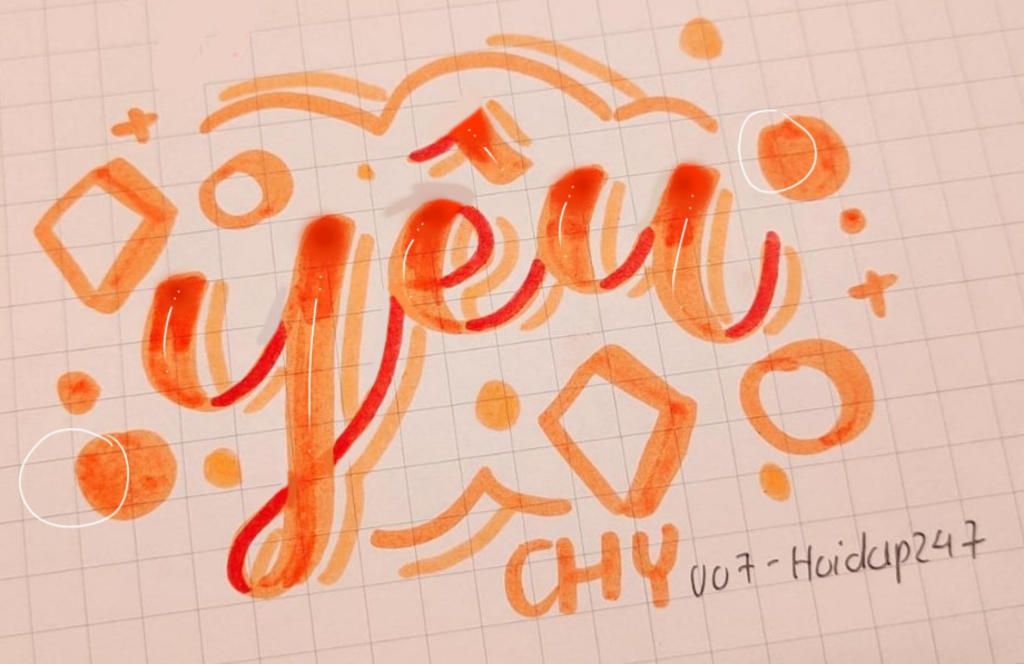 yêu
CHY 007-Hoidap247